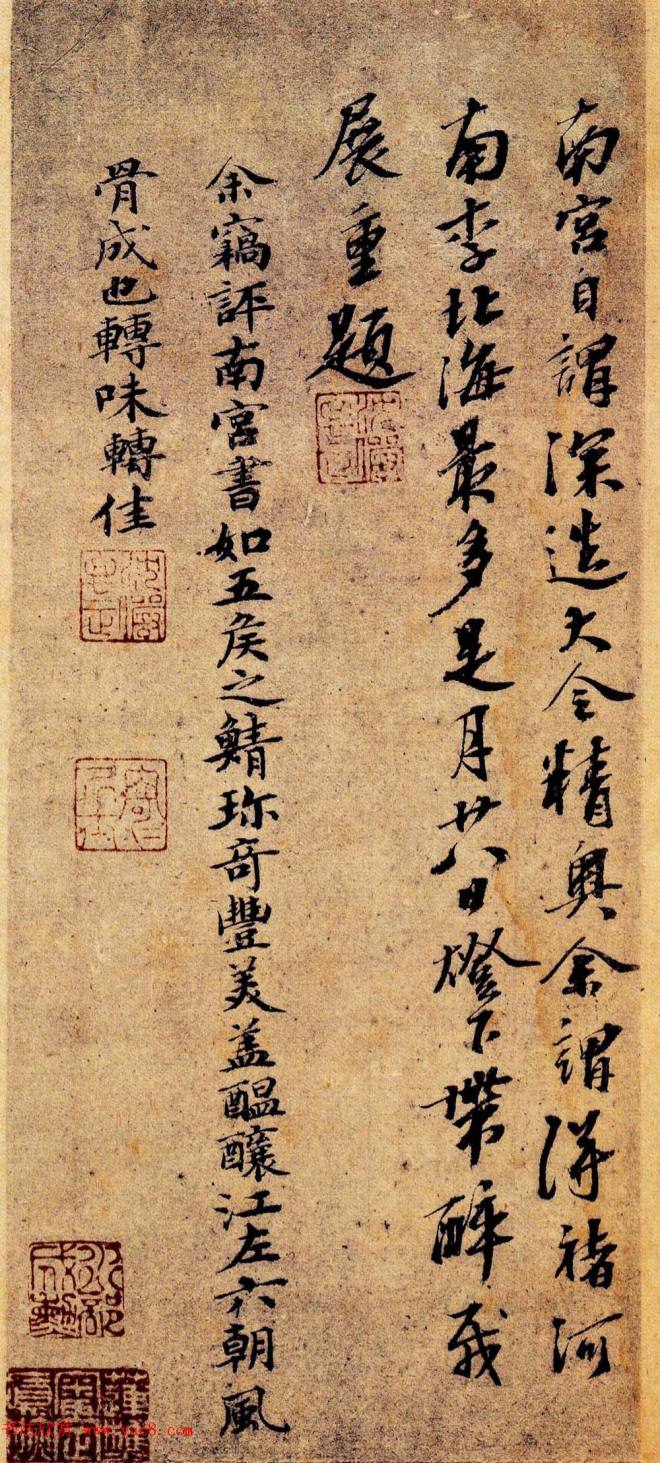 南宫自謂深造大令精奥余謂得褚河
南李北海最多是月廿八日燈下帶醉戏
展重題
余竊評南宫書如五矦之鯖珎奇豐美盖醖釀江左六朝風
骨成也轉味轉佳